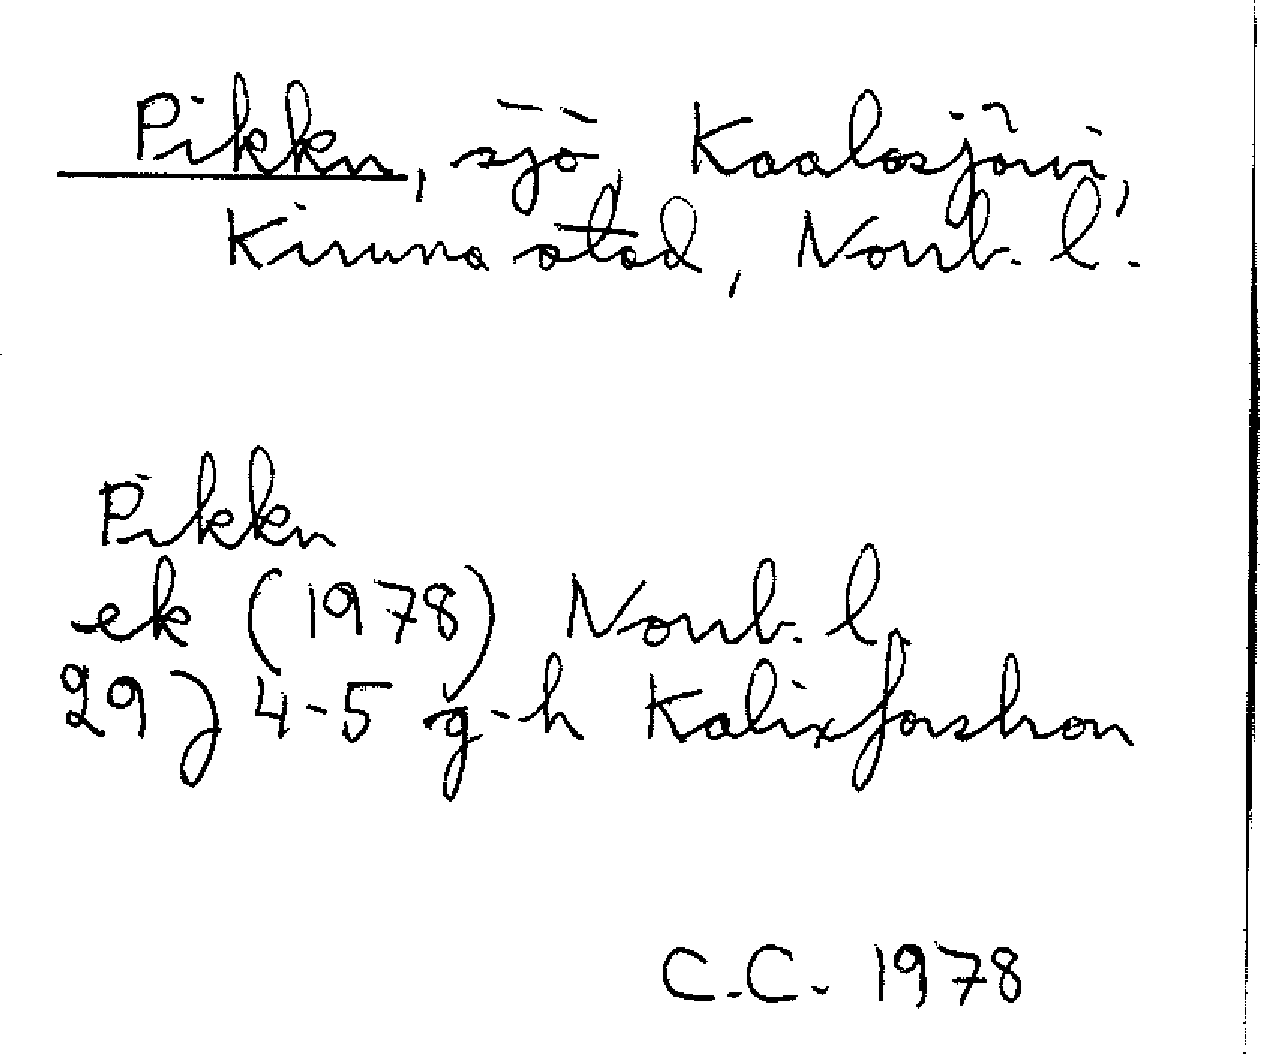 Pikku, sjö, Kaalasjärvi,
Kiruna stad, Norrb. l.
Pikku
ek (1978) Norrb. l.
29 J 4-5 g-h Kalixforsbron
C.C. 1978